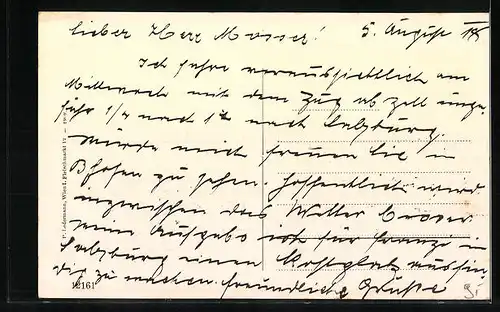 Lieber Herr Mosser! 5. August
Ich fahre voraussichtlich am
Mittwoch mit dem Zug ab Zell unge-
fähr 1/4 nach 1h nach Salzburg.
Würde mich freuen Sie in
B'hofen zu sehen. Hoffentlich wird
inzwischen das Wetter besser
meine Aufgabe ist für Franzi in
Salzburg einen Kostplatz ausfin-
dig zu machen. freundliche Grüße
P. Ledermann, Wien I. Fleischmarkt 12
12161